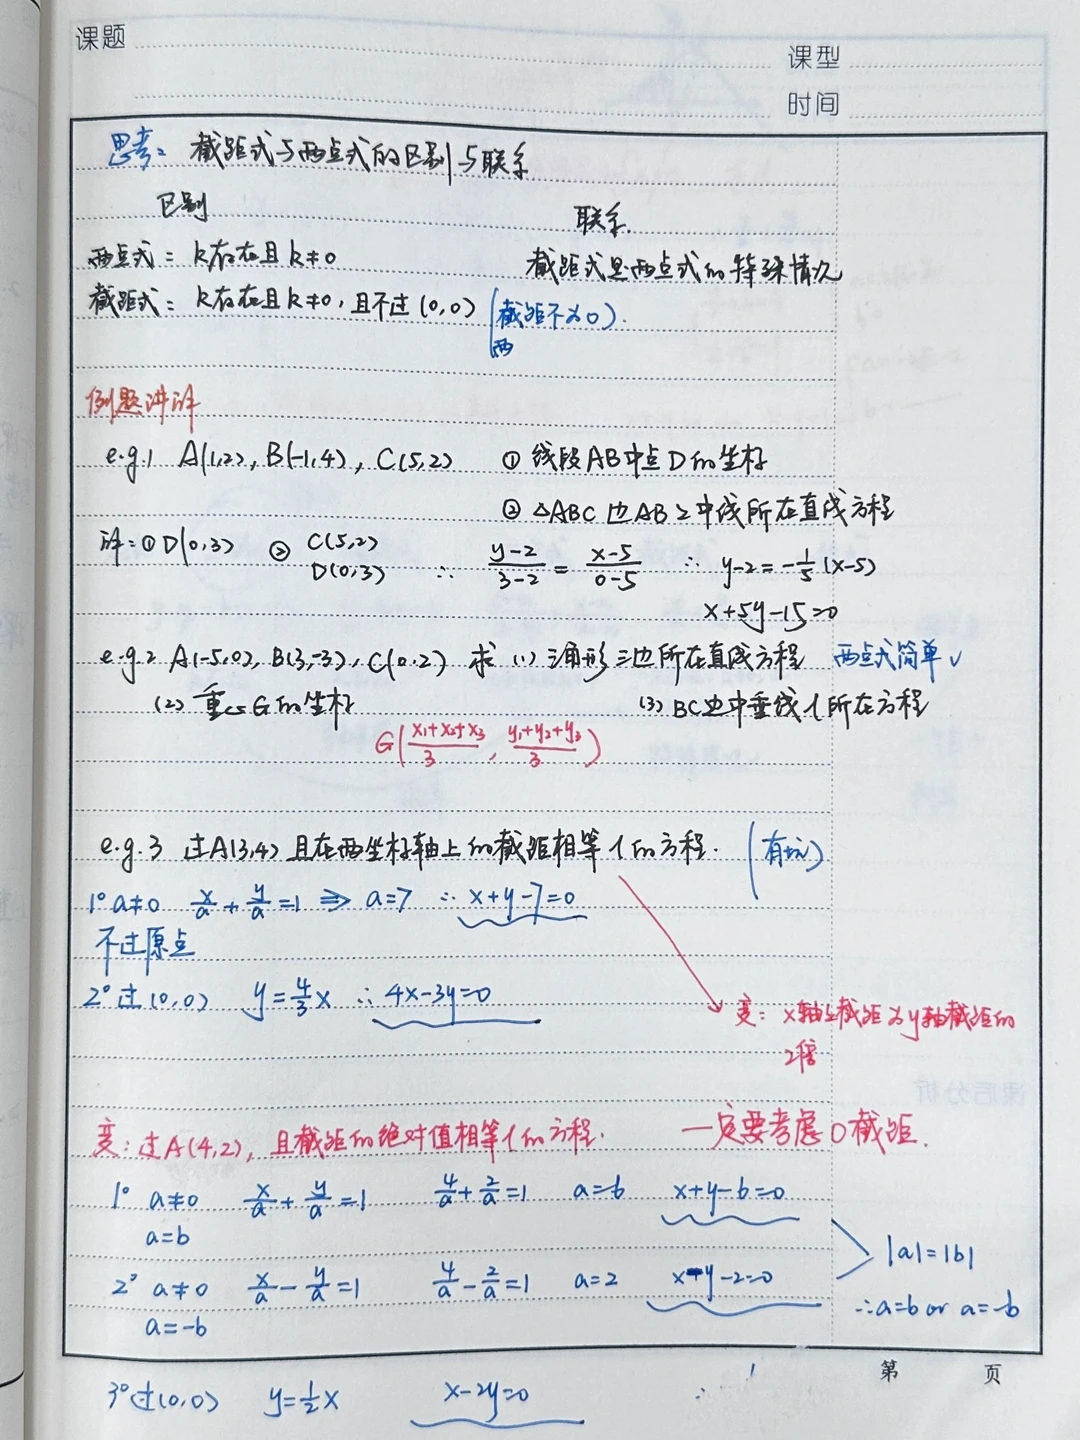 课题
课型
时间
思考：截距式与两点式的区别与联系
区别 联系
两点式：k存在且k≠0 截距式是两点式的特殊情况
截距式：k存在且k≠0，且不过(0,0) (截距不为0).
两
例题讲评
e.g.1 A(1,2), B(-1,4), C(5,2) ① 线段AB中点D的坐标
② △ABC 边AB上中线所在直线方程
评：① D(0,3) ② C(5,2)
D(0,3) ∴ \frac{y-2}{3-2} = \frac{x-5}{0-5} ∴ y-2=-\frac{1}{5}(x-5)
x+5y-15=0
e.g.2 A(-5,0), B(3,-3), C(0,2) 求 (1) 三角形三边所在直线方程 两点式简单✓
(2) 重心G的坐标 (3) BC边中垂线l所在方程
G(\frac{x₁+x₂+x₃}{3}, \frac{y₁+y₂+y₃}{3})
e.g.3 过A(3,4)且在两坐标轴上的截距相等l的方程. (有坑)
1° a≠0 \frac{x}{a}+\frac{y}{a}=1 ⇒ a=7 ∴ x+y-7=0
不过原点
2° 过(0,0) y=\frac{4}{3}x ∴ 4x-3y=0
变：x轴上截距为y轴截距的
2倍
变：过A(4,2)，且截距的绝对值相等l的方程. 一定要考虑0截距.
1° a≠0 \frac{x}{a}+\frac{y}{a}=1 \frac{4}{a}+\frac{2}{a}=1 a=6 x+y-6=0
a=b
|a|=|b|
2° a≠0 \frac{x}{a}-\frac{y}{a}=1 \frac{4}{a}-\frac{2}{a}=1 a=2 x-y-2=0
∴a=b or a=-b
a=-b
第 页
3° 过(0,0) y=\frac{1}{2}x x-2y=0